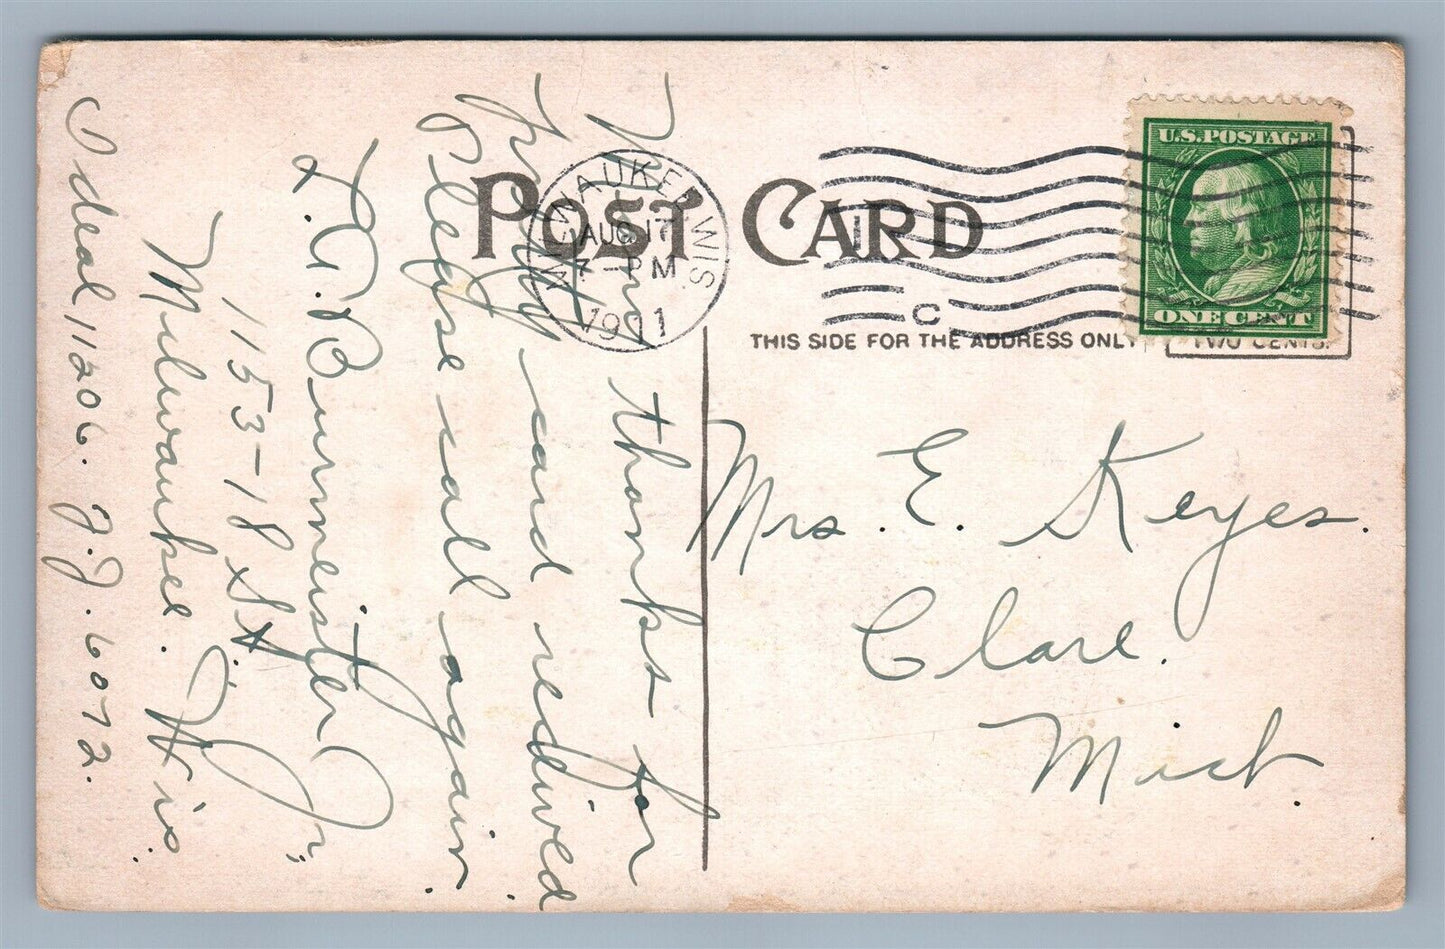 POST CARD
MILWAUKEE, WIS.
AUG 17
7-PM
1911
C
U.S. POSTAGE
ONE CENT
THIS SIDE FOR THE ADDRESS ONLY
TWO CENTS.
Mrs. E. Keyes.
Clare.
Mich.
Many thanks for
pretty card received
Please call again.
L. A. Burmeister Jr.
1153-18 St
Milwaukee. Wis.
Ideal 11206. J.J. 6072.